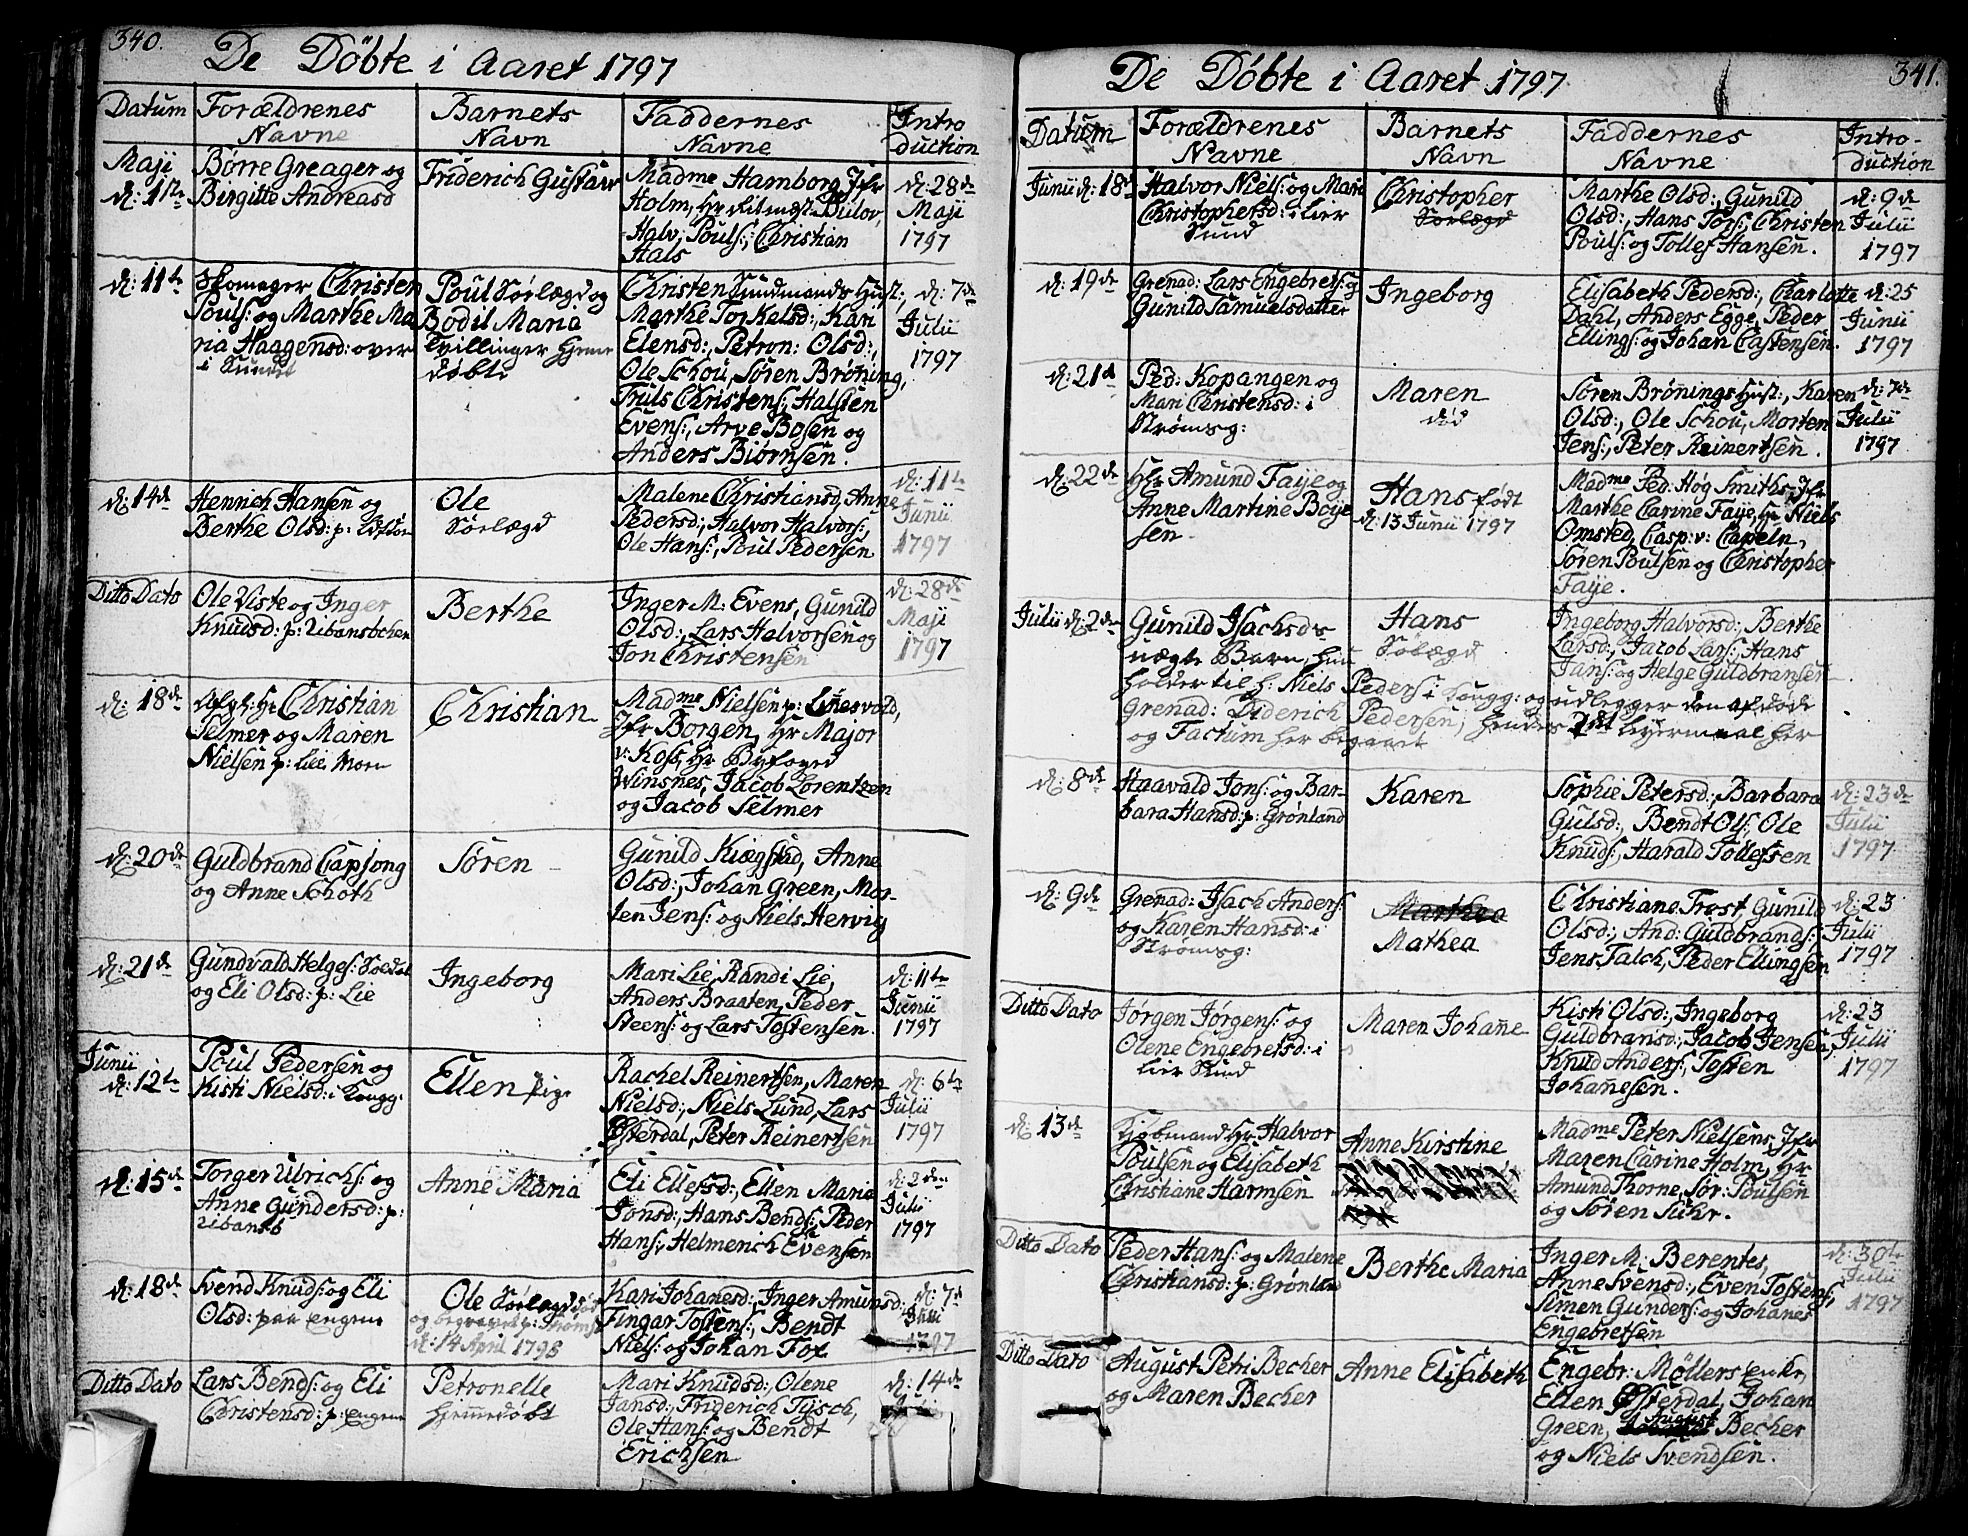 340.
De Döbte i Aaret 1797
Datum
Forældrenes
Navne
Barnets
Navn
Faddernes
Navne
Intro
duction
Maji
d: 1ste
Børre Greager og
Birgitte Andreasd
Friderich Gustav
Madme Hamborg, Jfr
Holm, Hr
Bülov,
Halv. Pouls:, Christian
Hals
d: 28de
Maji
1797
d: 11te
Skomager Christen
Pouls: og Marthe Ma
ria Haagensd: over
i Sundet
Poul Sørlægd og
Bodil Maria
Tvillinger hjeme
døbte
Christen Sundmands Hust:,
Marthe Torkelsd:, Kari
Elensd:, Petron: Olsd:,
Ole Schou, Søren Brøning,
Truls Christens:, Halsten
Evens:, Arve Bosen og
Anders Biørnsen.
d: 7de
Julii
1797
d: 14de
Henrich Hansen og
Berthe Olsd: p:
Ole
Sørlægd
Malene Christiansd, Anne
Pedersd:, Halvor Halvors:,
Ole Hans:, Poul Pedersen
d: 11te
Junii
1797
Ditto Dato
Ole Viste og Inger
Knudsd: p:
Berthe
Inger M: Evens, Gunild
Olsd:, Lars Halvorsen og
Jon Christensen
d: 28de
Maji
1797
d: 18de
Hr Christian
Selmer og Maren
Nielsen p: Lie Moen
Christian
Madme Nielsen p: Linesvold,
Jfr Borgen, Hr Major
v: Koss, Hr Byfoged
Winsnes, Jacob Lorentzen
og Jacob Selmer
d: 20de
Guldbrand Capsong
og Anne Schoth
Søren
Gunild Kiægstad, Anne
Olsd:, Johan Green, Mor-
ten Jens: og Niels Hervig
d: 21de
Gundvald Helges: Soldat
og Eli Olsd: p: Lie
Ingeborg
Mari Lie, Randi Lie,
Anders Braaten, Peder
Steens: og Lars Tostensen.
d: 11te
Junii
1797
Junii
d: 12te
Poul Pedersen og
Kisti Nielsd: i Tongg:
Ellen
Rachel Reinertsen, Maren
Nielsd:, Niels Lund, Lars
Østerdal, Peter Reinertsen
d: 6te
Julii
1797
d: 15de
Torger Ulrichs: og
Anne Gundersd: p:
Anne Maria
Eli Ellefsd:, Ellen Maria
Jonsd:, Hans Bends:, Peder
Hans:, Helmerich Evensen
d: 2den
Julii
1797
d: 18de
Svend Knuds: og Eli
Olsd: paa engene
Ole Sørlægd død
og begravet p: Strømsø
d: 14 April 1798
Kari Johanesd:, Inger Amunsd:
Fingar Tostens:, Bendt
Niels: og Johan Fox
d: 7de
Julii
1797
Ditto Dato
Lars Bends: og Eli
Christensd: p: engene
Petronelle
hjemedøbt
Mari Knudsd:, Olene
Jansd:, Friderich Tysch,
Ole Hans: og Bendt
Erichsen
d: 14de
341.
De Döbte i Aaret 1797
Datum
Forældrenes
Navne
Barnets
Navn
Faddernes
Navne
Intro-
duction
Junii d: 18de
Halvor Niels: og Mari
Christophersd: i Lier
Sund
Christopher
Sørlægd
Marthe Olsd:, Gunild
Olsd:, Hans Tors:, Christen
Pouls: og Tollef Hansen.
d: 9de
Julii
1797
d: 19de
Grenad: Lars Engebrets: og
Gunild Samuelsdatter
Ingeborg
Elisabeth Pedersd:, Charlotte
Dahl, Anders Egge, Peder
Ellings: og Johan Castensen.
d: 25
Junii
1797
d: 21de
Ped: Kopangen og
Mari Christensd: i
Strømsg:
Maren
død
Søren Brønings Hust:, Karen
Olsd:, Ole Schou, Morten
Jens:, Peter Reinertsen.
d: 7de
Julii
1797
d: 22de
Hr Amund Faye og
Anne Martine Boye
sen.
Hans født
d: 13 Junii 1797
Madme Ped: Høg Smiths, Jfr
Marthe Carine Faye, Hr Niels
Omsted, Casp: v: Capeln,
Søren Poulsen og Christopher
Faye.
Julii d: 2den
Gunild Isachsds
uægte Barn, hun
Hans
Sølægd
Ingeborg Halvorsd:, Berthe
Larsd:, Jacob Lars:, Hans
Jans: og Helge Guldbransen
holder til h: Niels Peders: i Tongg: og udlegger den afdøde
Grenad: Diderich Pedersen; hendes 2det leyermaal her
og Factum her begaaet
d: 8de
Haavald Jons: og Bar-
bara Hansd: p: Grønland
Karen
Sophie Petersd:, Barbara
Gulsd:, Bendt Ols:, Ole
Knuds:, Harald Tollefsen
d: 23de
Julii
1797
d: 9de
Grenad: Isach Anders:
og Karen Hansd: i
Strømsg:
Marthea
Mathea
Christiane Trost, Gunild
Olsd:, And: Guldbrands:,
Jens Falch, Peder Ellingsen
d: 23
Julii
1797
Ditto Dato
Jørgen Jørgens: og
Olene Engebretsd: i
Lier Sund
Maren Johanne
Kisti Olsd:, Ingeborg
Guldbransd:, Jacob Jensen,
Knud Anders:, Tosten
Johanesen.
d: 23
Julii
1797
d: 13de
Kjøbmand Hr Halvor
Poulsen og Elisabeth
Christiane Harmsen
Anne Kirstine
Madme Peter Nielsens, Jfr
Maren Carine Holm, Hr
Amund Thorne, Sør: Poulsen
og Søren Suhr.
Ditto Dato
Peder Hans: og Malene
Christiansd: p: Grønland
Berthe Maria
Inger M: Berentes,
Anne Svensd:, Even Tostens:,
Simen Gunders: og Johanes
Engebretsen
d: 30te
Julii
1797
Ditto Dato
August Petri Becher
og Maren Becher
Anne Elisabeth
Engebr: Møllers enke,
Ellen Østerdal, Johan
Green, August Becher
og Niels Svendsen.